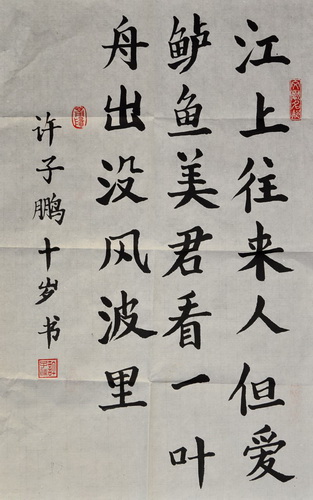 江上往来人但爱
鲈鱼美君看一叶
舟出没风波里
许子鹏十岁书